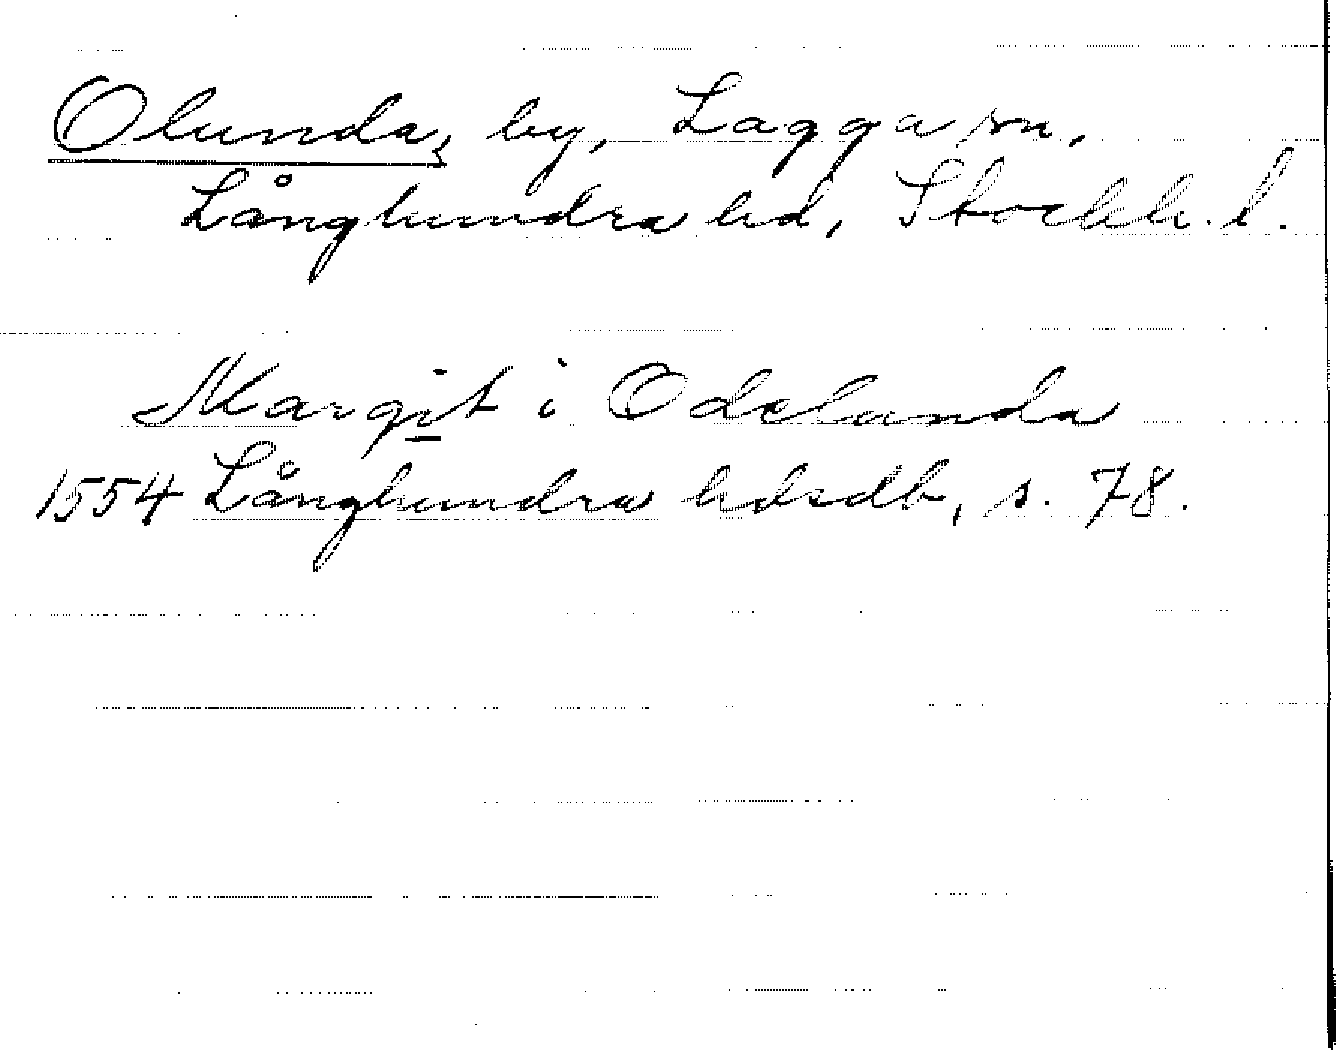 Olunda, by, Lagga sn,
Långhundra hd, Stockh. l.
Margit i Odelunda
1554 Långhundra hdsdb, s. 78.